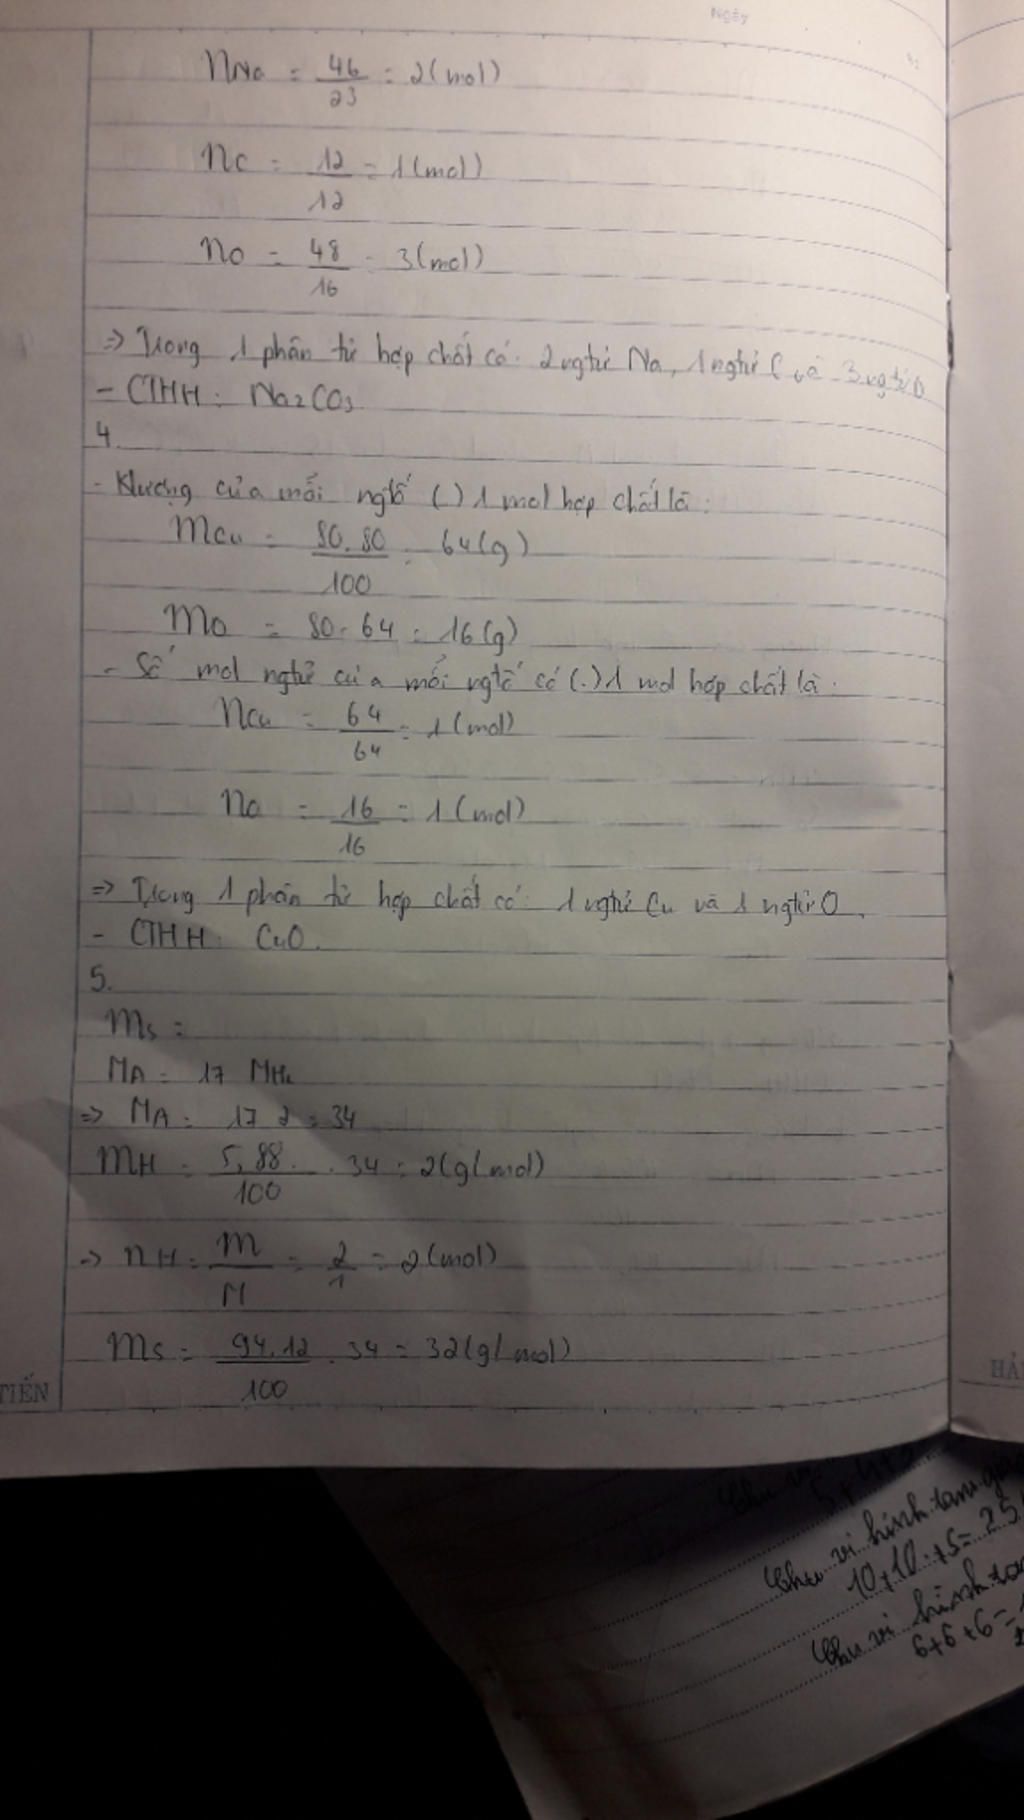 Ngày
nNa = 46/23 = 2(mol)
nC = 12/12 = 1(mol)
nO = 48/16 = 3(mol)
=> Trong 1 phân tử hợp chất có: 2 ngtử Na, 1 ngtử C và 3 ngtử O
- CTHH: Na2CO3
4.
- Klượng của mỗi ngtố (.) 1 mol hợp chất là:
mCu = 80.80/100 = 64(g)
mO = 80-64 = 16(g)
- Số mol ngtử của mỗi ngtố có (.) 1 mol hợp chất là:
nCu = 64/64 = 1(mol)
nO = 16/16 = 1(mol)
=> Trong 1 phân tử hợp chất có: 1 ngtử Cu và 1 ngtử O.
- CTHH: CuO.
5.
mS =
MA = 17 MH2
=> MA = 17.2 = 34
mH = 5,88/100 . 34 = 2(g/mol)
=> nH = m/M = 2/1 = 2(mol)
mS = 94,12/100 . 34 = 32(g/mol)
TIẾN
HẢ
Chu vi
Chu vi hình tam giác
10+10+5=25
Chu vi hình ta
6+6+6=